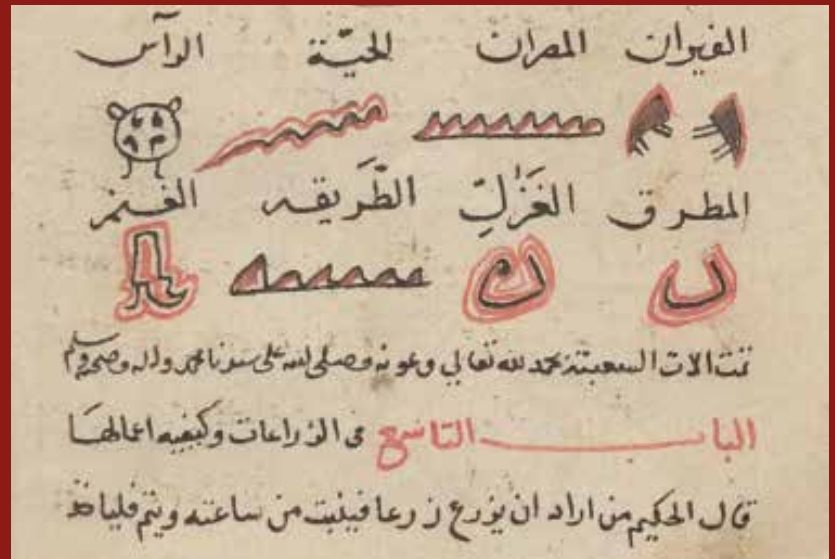 الفيران المصران الحيّة الرأس
المطرق الغَزَالِ الطَّرَيقه الغنم
تمت الات السعبتة بحمد لله تعالي وعونه وصلى لله على سيدنا محمد واله وصحبه وسلم
الباب التاسع في الزراعات وكيفيه اعمالها
قال الحكيم من اراد ان يزرع زرعا فينبت من ساعته ويتم فلياخذ